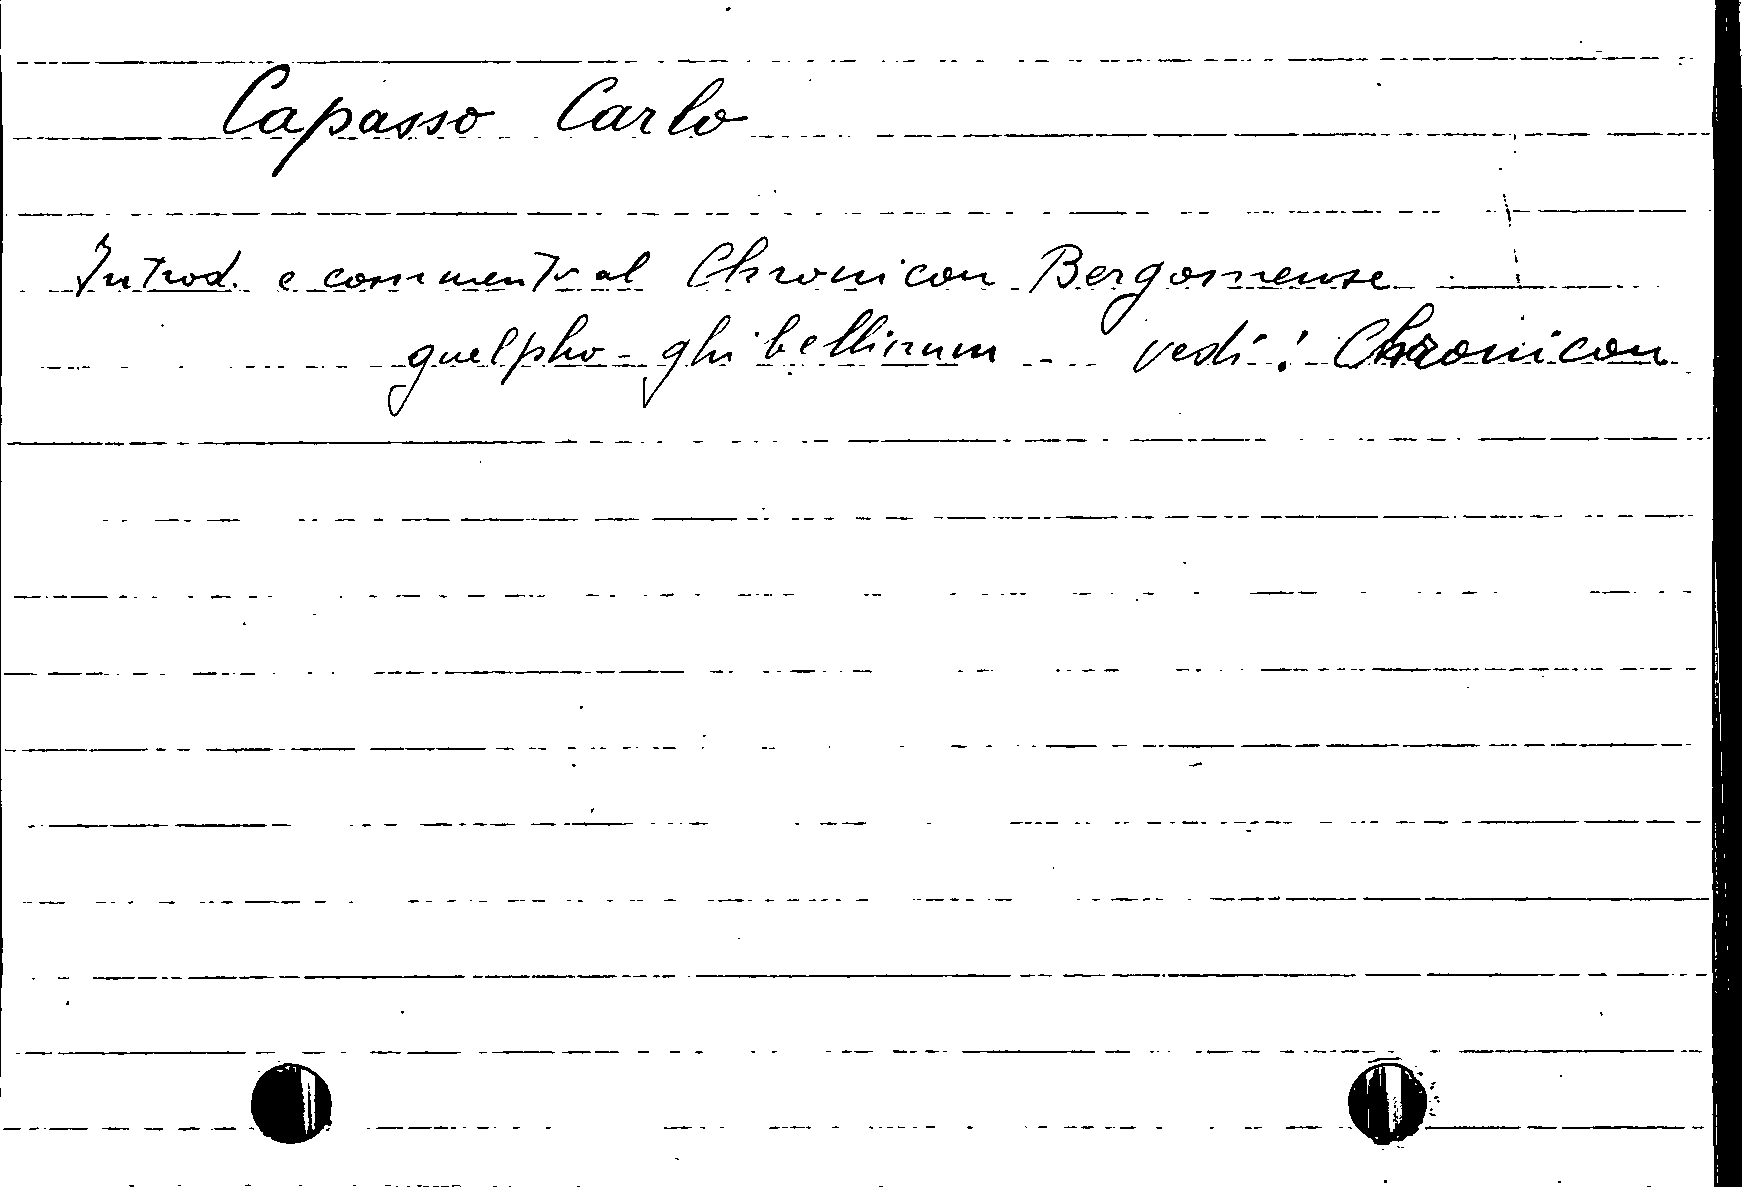 Capasso Carlo
Introd. e commento al Chronicon Bergomense
guelpho-ghibellinum - vedi: Chronicon